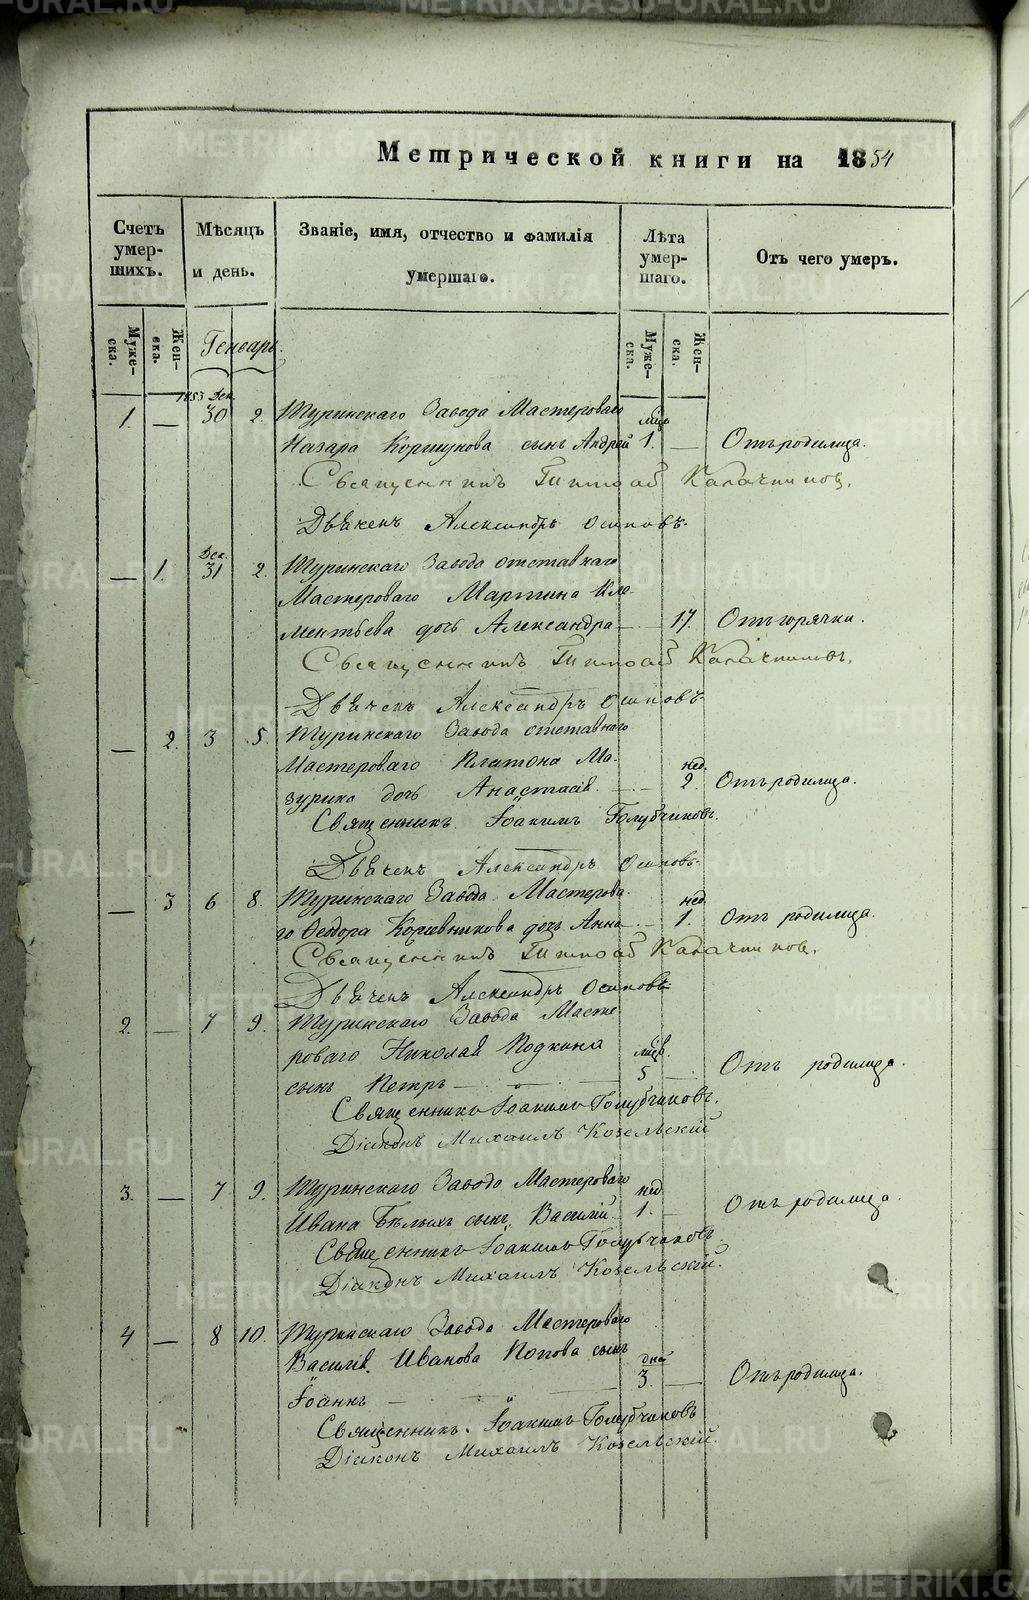 Метрической книги на 1854
Счетъ умер- шихъ.
Мѣсяцъ и день.
Званіе, имя, отчество и фамилія умершаго.
Лѣта умер- шаго.
Отъ чего умеръ.
Муже- ска.
Жен- ска.
Генварь.
Муже- ска.
Жен- ска.
1853 Дек.
1. — 30 2. Туринскаго Завода Мастероваго мѣц.
Назара Коршунова сынъ Андрей 1. — Отъ родимца.
Священникъ Тимоѳей Калачниковъ.
Дьяченъ Александръ Осиповъ.
Дек.
— 1. 31 2. Туринскаго Завода отставнаго
Мастероваго Мартина Кле-
ментьева дочь Александра — 17. Отъ горячки.
Священникъ Тимоѳей Калачниковъ.
Дьяченъ Александръ Осиповъ
— 2. 3 5. Туринскаго Завода отставнаго
Мастероваго Платона Ма- нед.
зурина дочь Анастасія. — 2. Отъ родимца.
Священникъ Іоакимъ Голубчиковъ.
Дьяченъ Александръ Осиповъ
— 3 6 8. Туринскаго Завода Мастерова- нед.
го Ѳеодора Кожевникова дочь Анна — 1. Отъ родимца.
Священникъ Тимоѳей Калачниковъ.
Дьяченъ Александръ Осиповъ
2. — 7 9. Туринскаго Завода Масте-
роваго Николая Подкина мѣц.
сынъ Петръ — 5 — Отъ родимца.
Священникъ Іоакимъ Голубчиковъ.
Діаконъ Михаилъ Козельскій
3. — 7 9. Туринскаго Завода Мастероваго нед
Ивана Бѣлыхъ сынъ Василій. 1. — Отъ родимца.
Священникъ Іоакимъ Голубчиковъ.
Діаконъ Михаилъ Козельскій.
4 — 8 10. Туринскаго Завода Мастероваго
Василія Иванова Попова сынъ дня
Іоаннъ — 3. — Отъ родимца.
Священникъ Іоакимъ Голубчиковъ
Діаконъ Михаилъ Козельскій.
METRIKI.GASO-URAL.RU